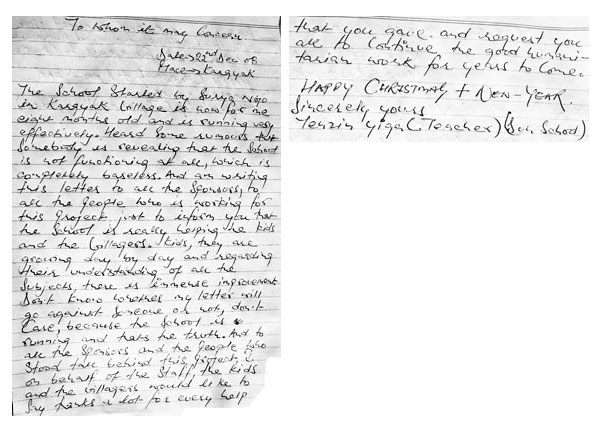 To whom it may Concern
Date→22nd Dec 08
Place→Kargyak
The School Started by Surya NGO
in Kargyak Village is now for me
eight months old and is running very
effectively. Heard Some rumours that
Somebody is revealing that the School
is not functioning at all, which is
completely baseless. And am writing
this letter to all the Sponsors, to
all the people who is working for
this Project just to inform you that
the School is really helping the kids
and the Villagers. Kids, they are
growing day by day and regarding
their understanding of all the
Subjects, there is immense improvement
Don't know whether my letter will
go against Someone or not, don't
Care, because the School is
running and thats the truth. And to
all the Sponsors and the people who
Stood tall behind this Project, I
on behalf of the Staff, the kids
and the villagers would like to
Say thanks a lot for every help
that you gave. and request you
all to Continue the good humani-
tarian work for years to Come.
HAPPY CHRISTMAS + NEW-YEAR.
Sincerely yours
Tenzin (Teacher) (Sun School)